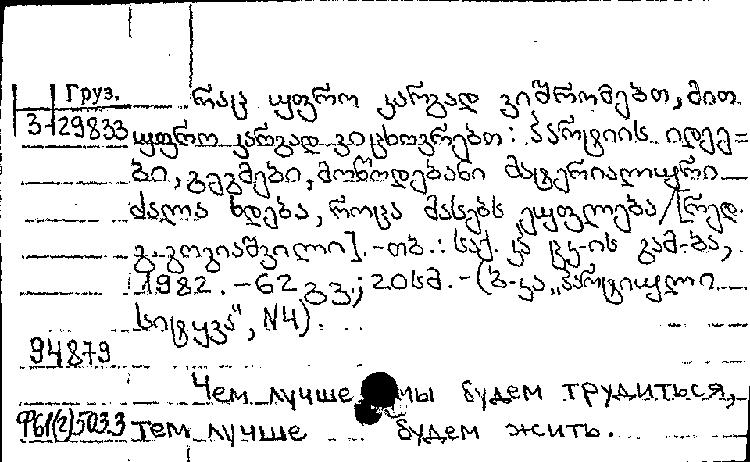 Груз.
რაც უფრო კარგად ვიშრომებთ, მით
3-29833
უფრო კარგად ვიცხოვრებთ: პარტიის იდეე=
ბი, გეგმები, მოწოდებანი მატერიალური
ძალა ხდება, როცა მასებს ეუფლება/[რედ.
გ. გოგიაშვილი].-თბ.: საქ. კპ ცკ-ის გამ-ბა,
1982.-62 გვ.; 20სმ.-(ბ-კა „პარტიული
სიტყვა", N4).
94879
Чем лучше мы будем трудиться,
Ф61(2)503.3 тем лучше будем жить.